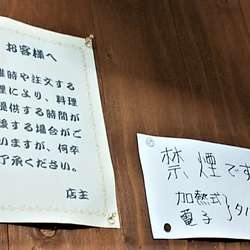 お客様へ
雑時や注文する
理により、料理
提供する時間が
後する場合がご
いますが、何卒
了承ください。
店主
禁煙です
加熱式
電子
タバ